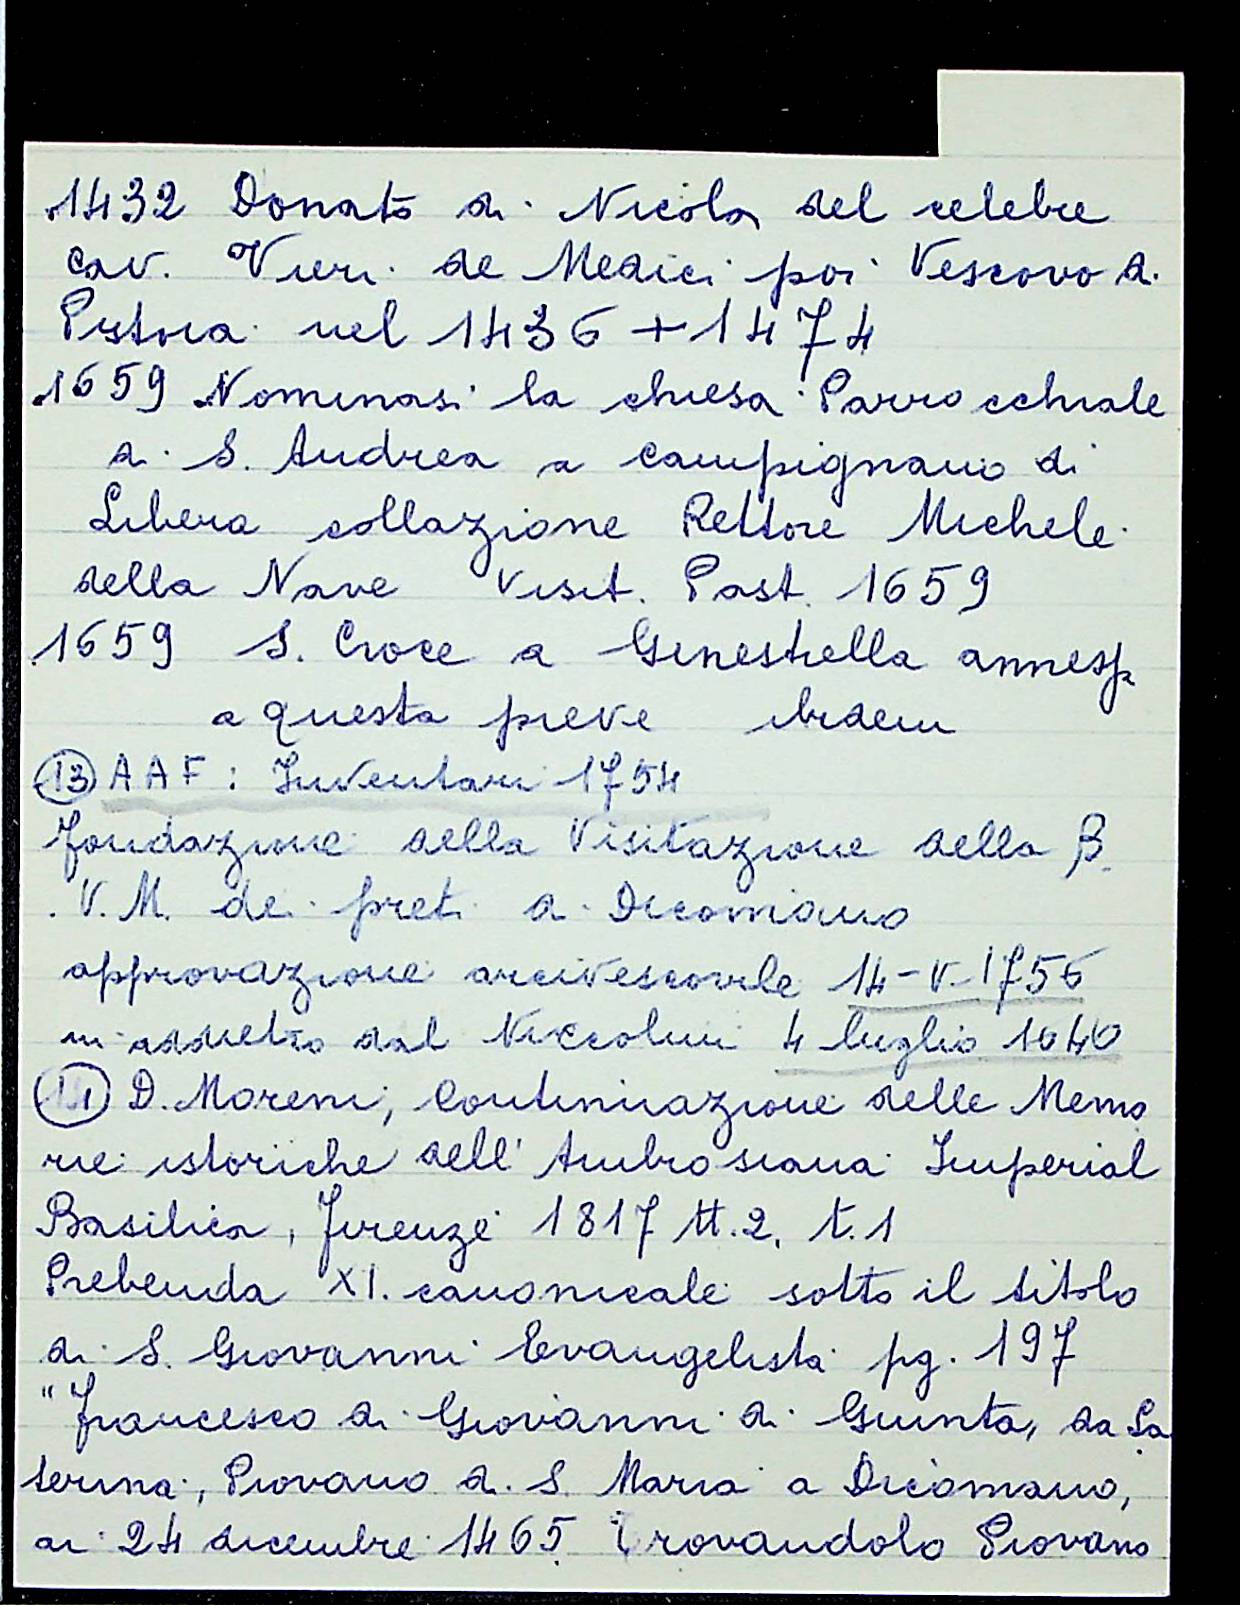 1432 Donato di Nicola del celebre
cav. Vieri de Medici poi Vescovo di
Pistoia nel 1436 + 1474
1659 Nominasi la chiesa Parrocchiale
di S. Andrea a Campignano di
Libera collazione Rettore Michele
della Nave Visit. Past. 1659
1659 S. Croce a Ginestrella
a questa pieve ibidem
13 AAF: Inventari 1754
fondazione della Visitazione della B.
V. M. dei preti a Dicomano
approvazione arcivescovile 14-V-1756
in addietro dal Niccolini 4 luglio 1640
D. Moreni, Continuazione delle Memo
rie istoriche dell'Ambrosiana Imperial
Basilica, Firenze 1817 tt.2, t.1
Prebenda XI. canonicale sotto il titolo
di S. Giovanni Evangelista pg. 197
"Francesco di Giovanni di Giunta, da La
terina, Piovano di S. Maria a Dicomano,
ai 24 dicembre 1465 Trovandolo Piovano